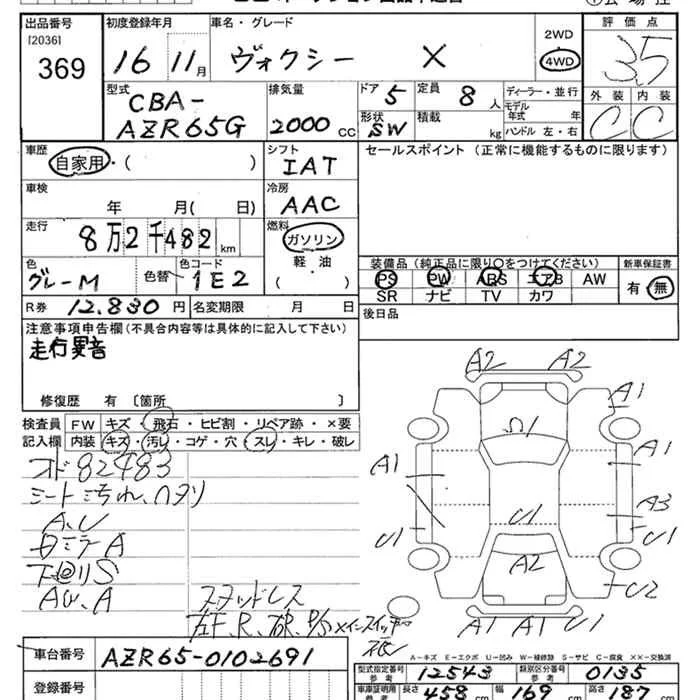 出品番号 初度登録年月 車名・グレード 2WD 評価点
[2036] 369 16 11月 ヴォクシー X 4WD 3.5
型式 排気量 ドア 5 定員 8人 ディーラー・並行 外装 内装
CBA- 形状 積載 モデル年式 年
AZR65G 2000cc SW kg ハンドル 左・右 C C
車歴 自家用・( ) シフト IAT セールスポイント (正常に機能するものに限ります)
車検 年 月( 日) 冷房 AAC
走行 8万2千482km 燃料 ガソリン
軽・油 装備品(純正品に限り○をつけてください) 新車保証書
色 グレーM 色替 色コード 1E2 ( ) PS PW ABS エアB AW 有 無
SR ナビ TV カワ
R券 12.830円 名変期限 月 日 後日品
注意事項申告欄(不具合内容等は具体的に記入して下さい)
走行異音
修復歴 有 〔箇所 〕
検査員 FW キズ・飛石・ヒビ割・リペア跡・×要
記入欄 内装 キズ・汚レ・コゲ・穴・スレ・キレ・破レ
82483
シート汚れ、ヘタリ
A.U
下回りS
スタッドレス
A2 A2
A1
U1
A1 A1
A3
U1 U1 U1
A2
U2
A1 A1 U1
A-キズ E-エクボ U-凹み W-補修跡 S-サビ C-腐食 ××-交換済
車台番号 AZR65-0102691
型式指定番号 参考 12543 類別区分番号 参考 0135
登録番号
車庫証明用 参考 長さ 458cm 幅 169cm 高さ 187cm